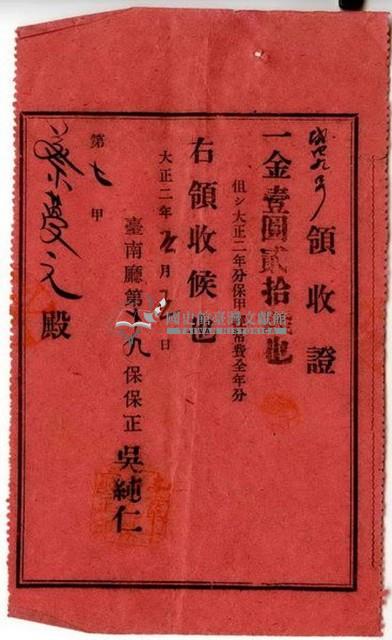 領收證
一金壹圓貳拾
但シ大正二年分保甲費全年分
右領收候也
大正二年 月 日
臺南廳第十九保保正 吳純仁
第七甲
蔡夢元殿
國史館臺灣文獻館
TAIWAN HISTORICA